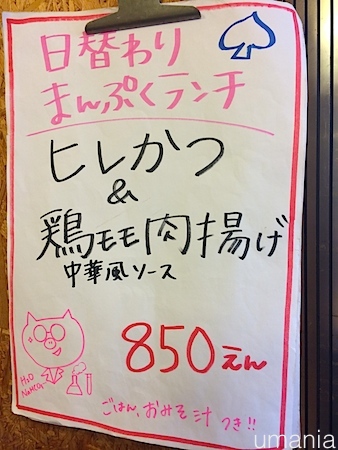 日替わり
まんぷくランチ
ヒレかつ
&
鶏モモ肉揚げ
中華風ソース
850えん
H2O
NaHCO3
ごはん、おみそ汁 つき!!
umania